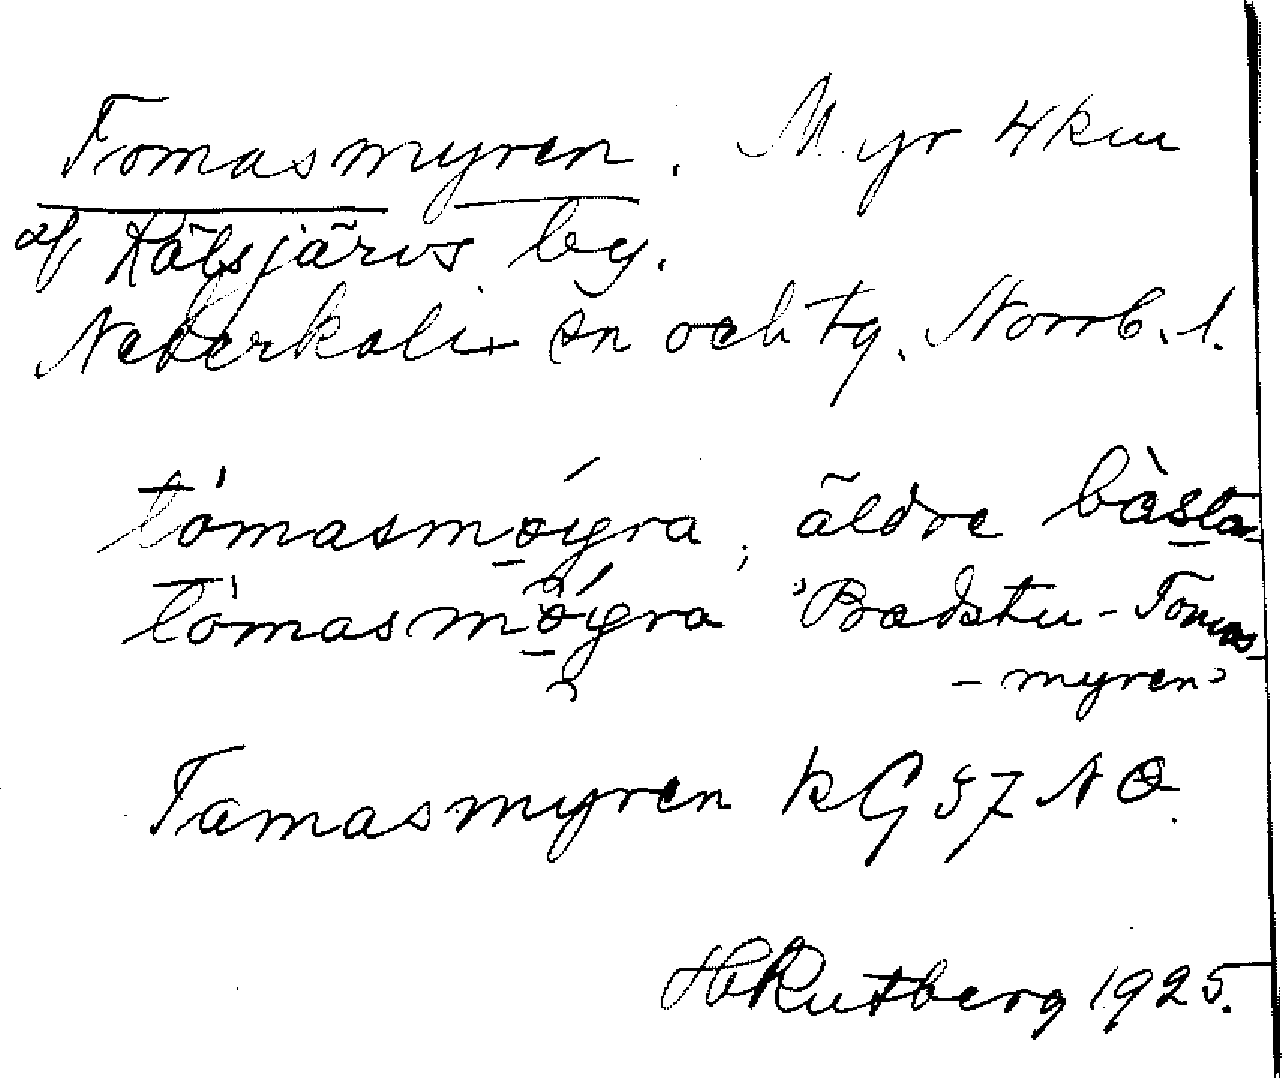 Tomasmyren. Myr 4 km
af Rålsjärvs by.
Nederkalix sn och tg. Norrb. l.
tómasmøýra, äldre bàsta-
tómasmøýra 'Badstu-Tomas-
-myren'
Tamasmyren KG 37 NO.
H Rutberg 1925.